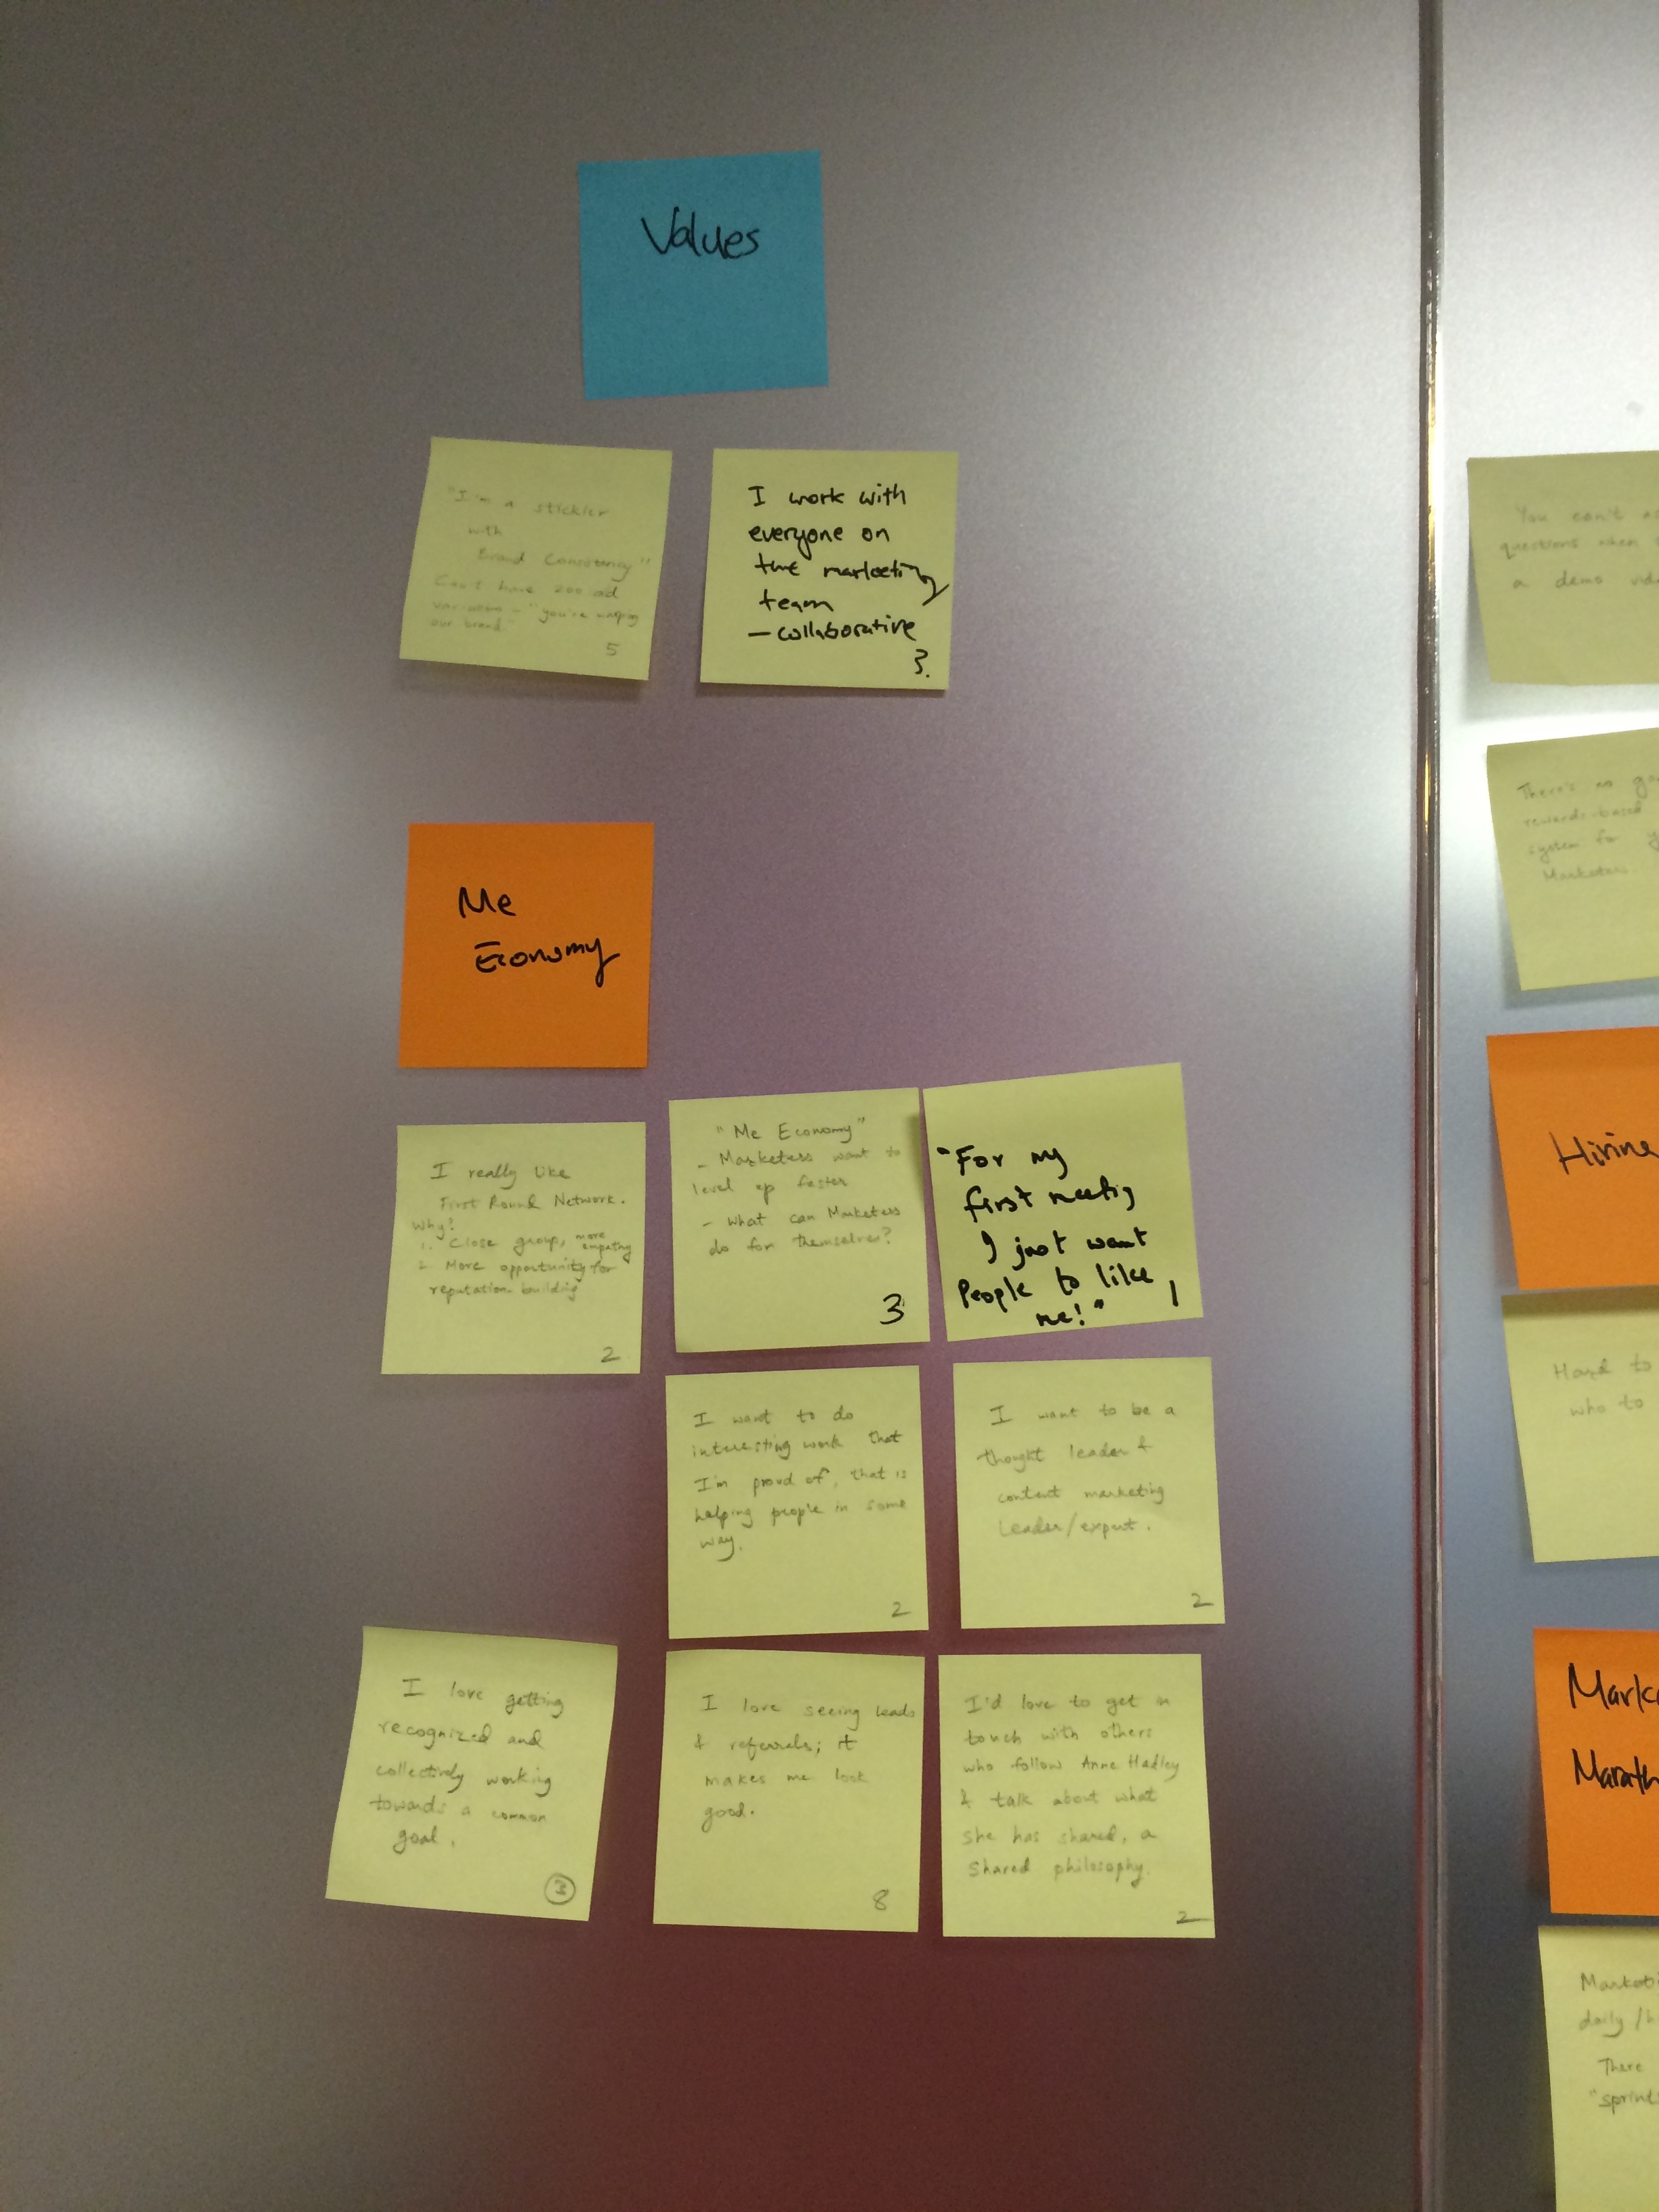 Values
"I'm a stickler
with
Brand Consistency"
Can't have 200 ad
variations - "you're warping
our brand"
5
I work with
everyone on
the marketing
team
- collaborative
3.
Me
Economy
I really like
First Round Network.
Why?
1. Close group, more empathy
2. More opportunity for
reputation building
2
"Me Economy"
- Marketers want to
level up faster
- What can Marketers
do for themselves?
3
"For my
first meeting
I just want
People to like
me!"
1
I want to do
interesting work that
I'm proud of, that is
helping people in some
way.
2
I want to be a
thought leader &
content marketing
leader/expert.
2
I love getting
recognized and
collectively working
towards a common
goal.
3
I love seeing leads
& referrals; it
makes me look
good.
8
I'd love to get in
touch with others
who follow Anne Hadley
& talk about what
she has shared, a
shared philosophy.
2
You can't
questions when
a demo
There's no
rewards-based
system for
Marketers
Hiring
Hard to
who to
Marath
daily /
There
"sprint